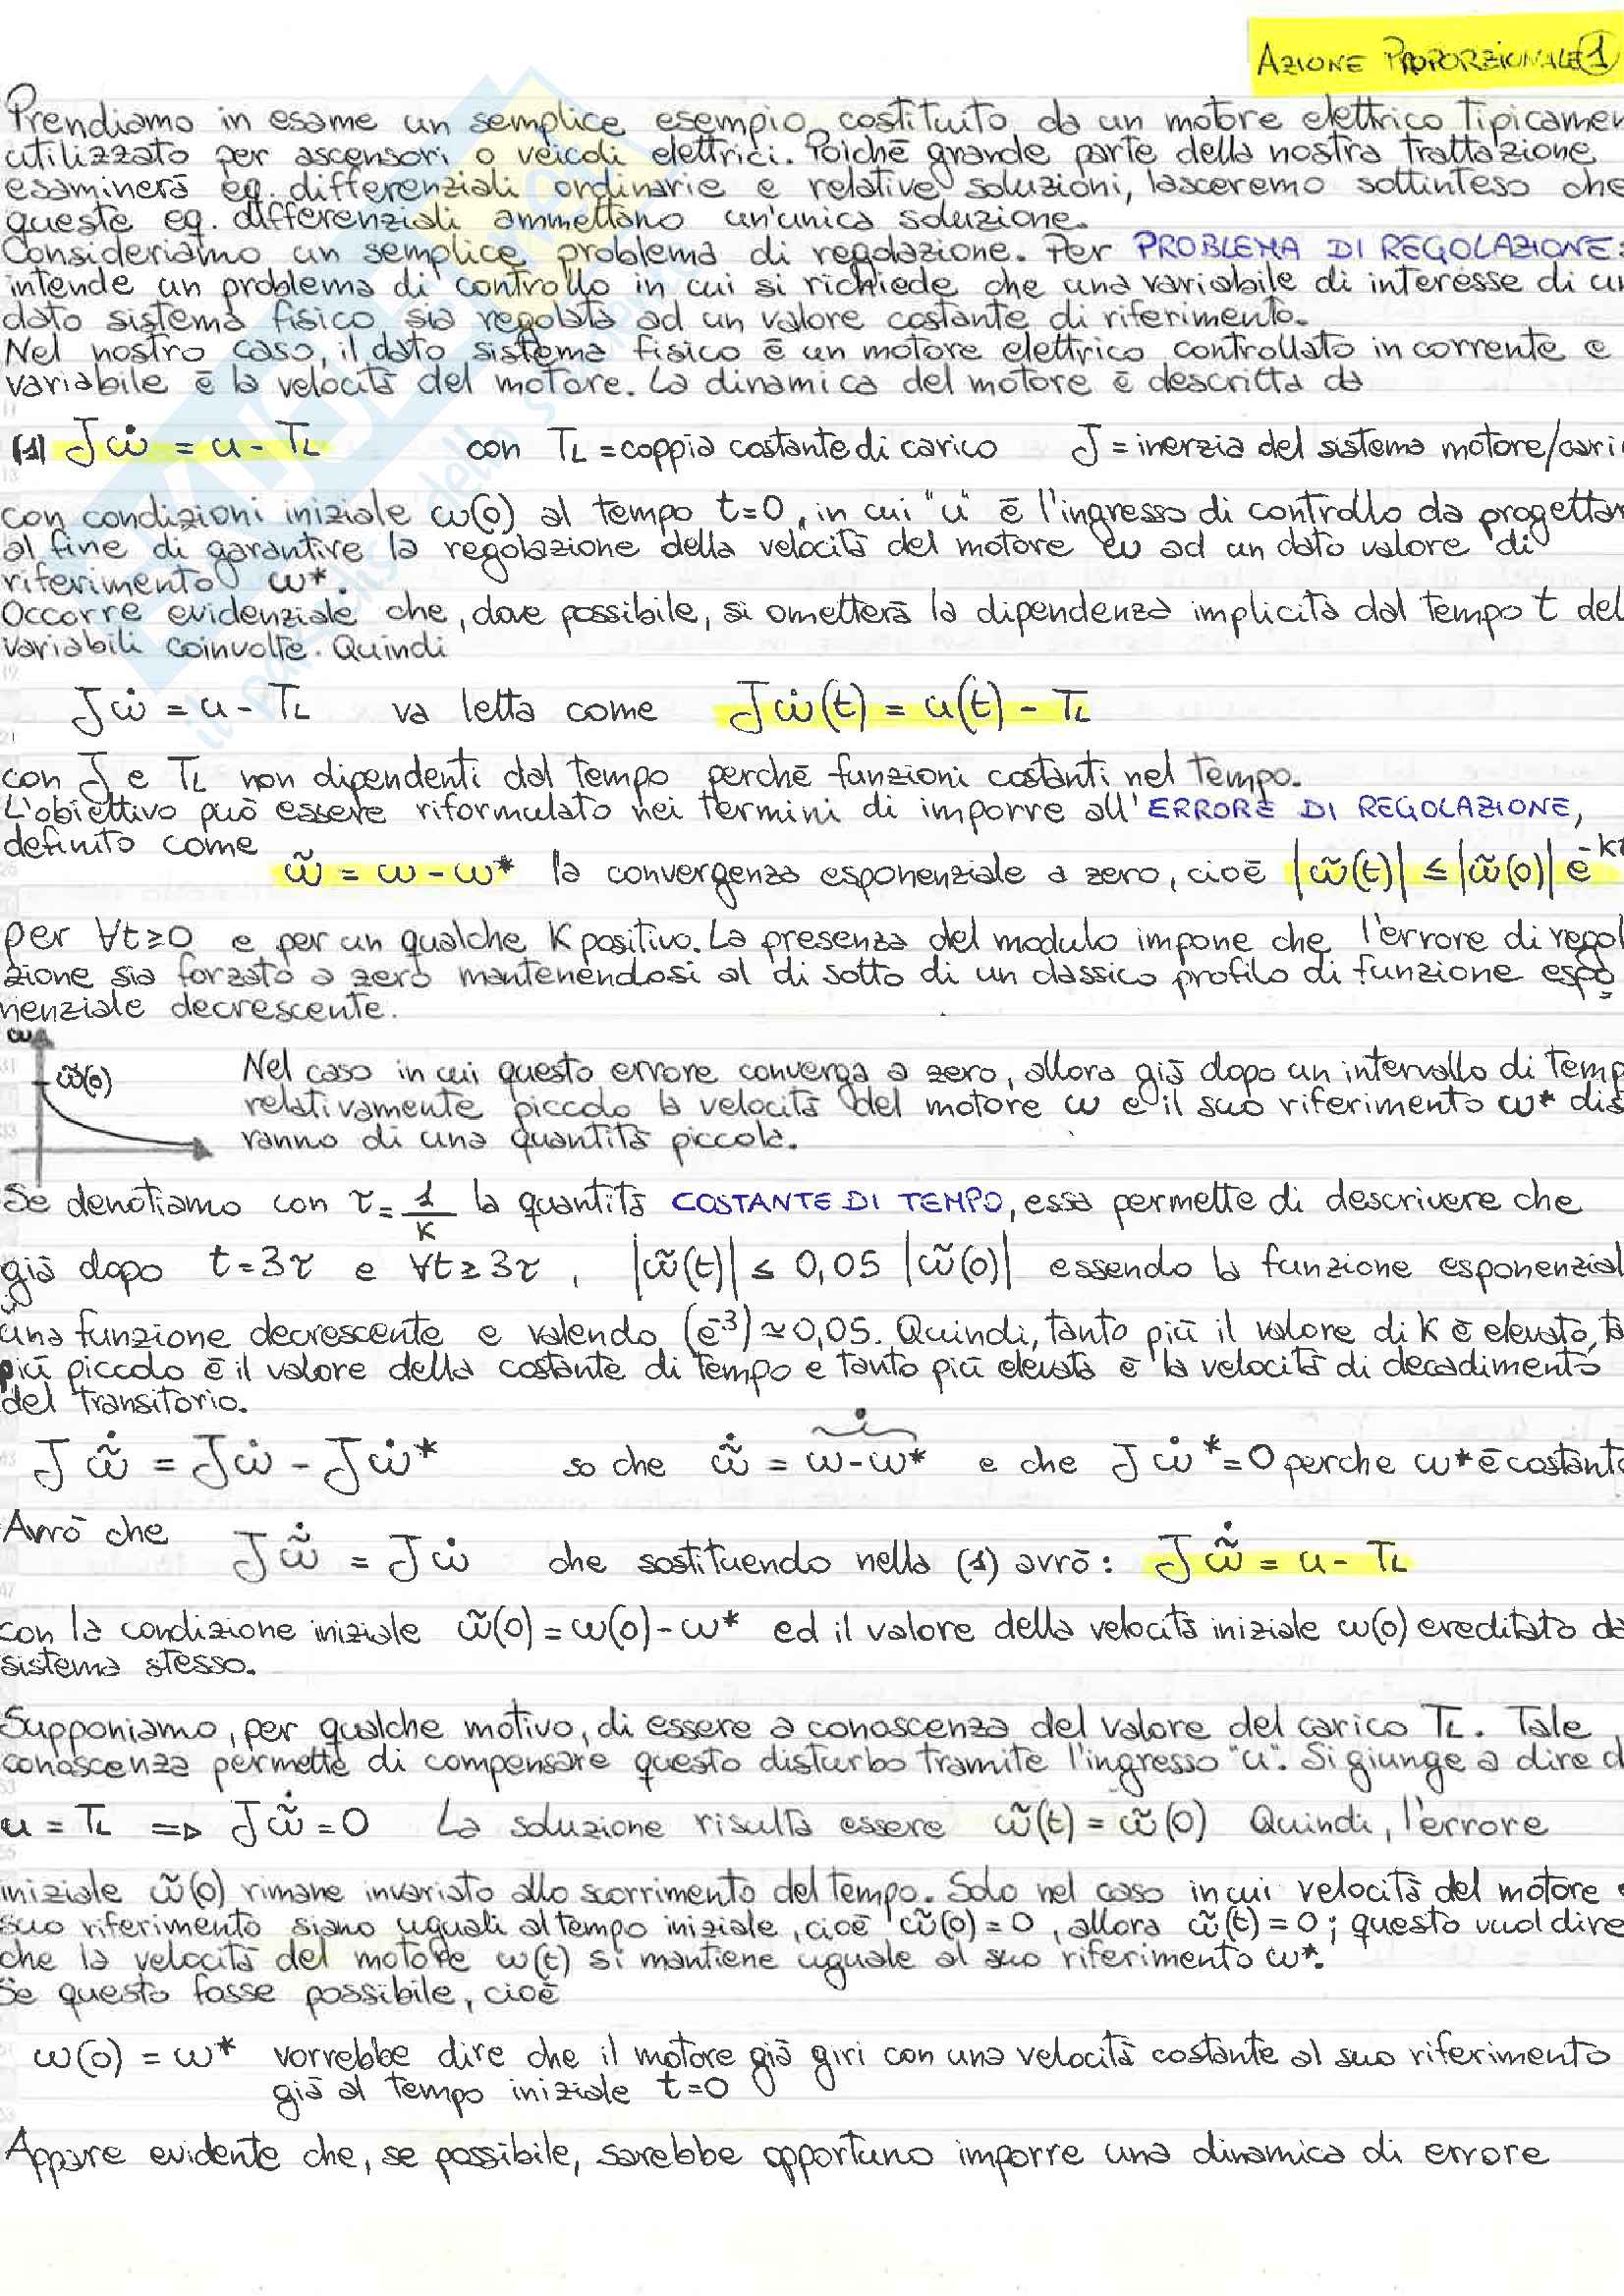 AZIONE PROPORZIONALE 1
Prendiamo in esame un semplice esempio, costituito da un motore elettrico tipicamen
utilizzato per ascensori o veicoli elettrici. Poichè grande parte della nostra trattazione
esaminerà eq. differenziali ordinarie e relative soluzioni, lasceremo sottinteso che
queste eq. differenziali ammettano un'unica soluzione.
Consideriamo un semplice problema di regolazione. Per PROBLEMA DI REGOLAZIONE
intende un problema di controllo in cui si richiede che una variabile di interesse di un
dato sistema fisico sia regolata ad un valore costante di riferimento.
Nel nostro caso, il dato sistema fisico è un motore elettrico controllato in corrente e
variabile è la velocità del motore. La dinamica del motore è descritta da
(1) Jω̇ = u - T_L con T_L = coppia costante di carico J = inerzia del sistema motore/cari
con condizioni iniziale ω(0) al tempo t=0, in cui "u" è l'ingresso di controllo da progettar
al fine di garantire la regolazione della velocità del motore ω ad un dato valore di
riferimento ω*.
Occorre evidenziale che, dove possibile, si ometterà la dipendenza implicita dal tempo t del
variabili coinvolte. Quindi
Jω̇ = u - T_L va letta come Jω̇(t) = u(t) - T_L
con J e T_L non dipendenti dal tempo perchè funzioni costanti nel tempo.
L'obiettivo può essere riformulato nei termini di imporre all'ERRORE DI REGOLAZIONE,
definito come
ω̃ = ω - ω* la convergenza esponenziale a zero, cioè |ω̃(t)| ≤ |ω̃(0)| e^-kt
per ∀t≥0 e per un qualche K positivo. La presenza del modulo impone che l'errore di regol
zione sia forzato a zero mantenendosi al di sotto di un classico profilo di funzione espo
nenziale decrescente.
ω
ω̃(0)
Nel caso in cui questo errore converga a zero, allora già dopo un intervallo di temp
relativamente piccolo la velocità del motore ω e il suo riferimento ω* dis
ranno di una quantità piccola.
Se denotiamo con τ = 1/K la quantità COSTANTE DI TEMPO, essa permette di descrivere che
già dopo t=3τ e ∀t≥3τ, |ω̃(t)| ≤ 0,05 |ω̃(0)| essendo la funzione esponenzial
una funzione decrescente e valendo (e^-3) ≃ 0,05. Quindi, tanto più il valore di K è elevato, ta
più piccolo è il valore della costante di tempo e tanto più elevata è la velocità di decadimento
del transitorio.
J ω̃̇ = Jω̇ - Jω̇* so che ω̃̇ = ω-ω* e che Jω̇* = 0 perche ω* è costant
Avrò che
Jω̃̇ = Jω̇ che sostituendo nella (1) avrò: Jω̃̇ = u - T_L
con la condizione iniziale ω̃(0) = ω(0) - ω* ed il valore della velocità iniziale ω(0) ereditato da
sistema stesso.
Supponiamo, per qualche motivo, di essere a conoscenza del valore del carico T_L. Tale
conoscenza permette di compensare questo disturbo tramite l'ingresso "u". Si giunge a dire c
u = T_L ⇒ Jω̃̇ = 0 La soluzione risulta essere ω̃(t) = ω̃(0) Quindi, l'errore
iniziale ω̃(0) rimane invariato allo scorrimento del tempo. Solo nel caso in cui velocità del motore e
suo riferimento siano uguali al tempo iniziale, cioè ω̃(0) = 0, allora ω̃(t) = 0; questo vuol dire
che la velocità del motore ω(t) si mantiene uguale al suo riferimento ω*.
Se questo fosse possibile, cioè
ω(0) = ω* vorrebbe dire che il motore già giri con una velocità costante al suo riferimento
già al tempo iniziale t=0
Appare evidente che, se possibile, sarebbe opportuno imporre una dinamica di errore